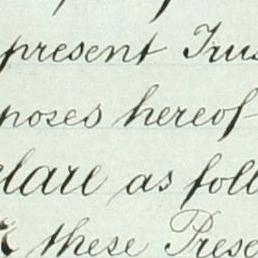 present Trus
poses hereof
clare as foll
these Prese